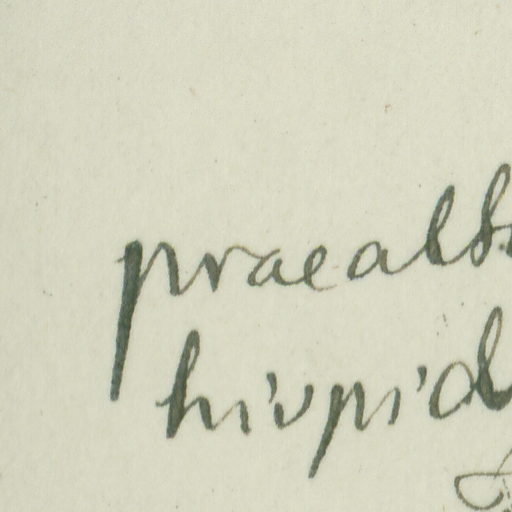 praealb
hirpid